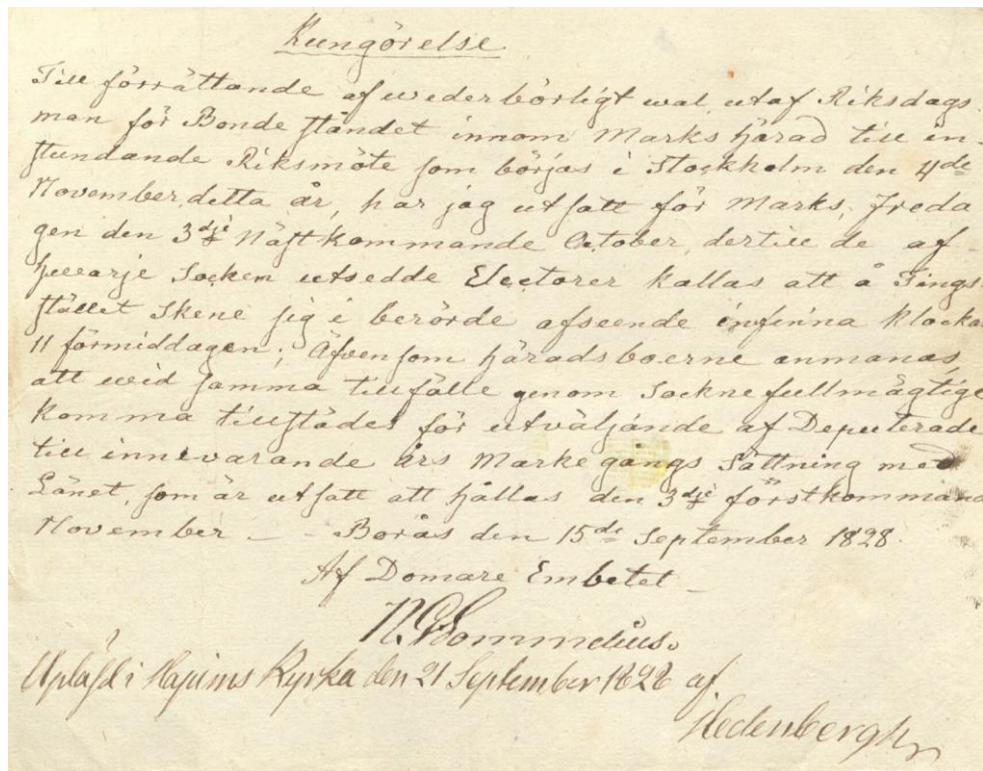 Kungörelse
Till förrättande af wederbörligt wal, utaf Riksdags-
man för Bonde ståndet innom Marks Härad till in-
stundande Riksmöte som börjas i Stockholm den 4de
November detta år, har jag utsatt för Marks, Freda
gen den 3dje Nästkommande October, dertill de af
hvarje Socken utsedde Electorer kallas att å Tings
stället Skene sig i berörde afseende infinna klocka
11 förmiddagen; Äfvensom Häradsboerne anmanas,
att wid samma tillfälle genom Sockne fullmägtige
komma tillstädes för utväljande af Deputerade
till innevarande Års Markegångs Sättning med
Länet, som är utsatt att hållas den 3dje förstkommand
November _ _ Borås den 15de September 1828.
Af Domare Embetet _
N. Sommelius.
Upläst i Kyrka den 21 September 1828 af
Hedenbergh